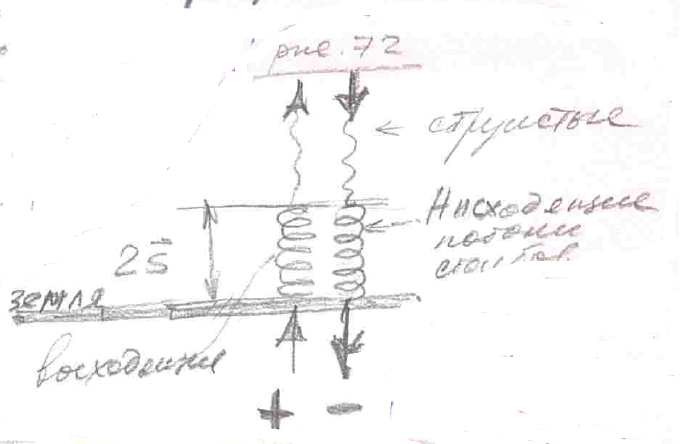 рис. 72
струистые
Нисходящие
потоки
2S⃗
земля
восходящие
+ −